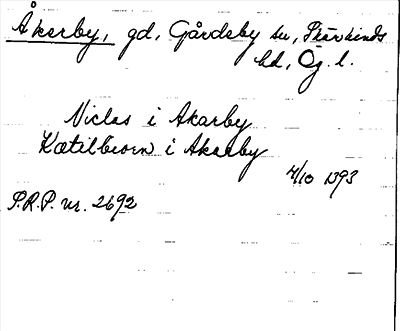 Åkerby, gd, Gårdeby sn, Skärkinds
hd, Ög. l.
Niclas i Akarby
Kætilbiorn i Akarby
4/10 1393
P.R.P. nr. 2692